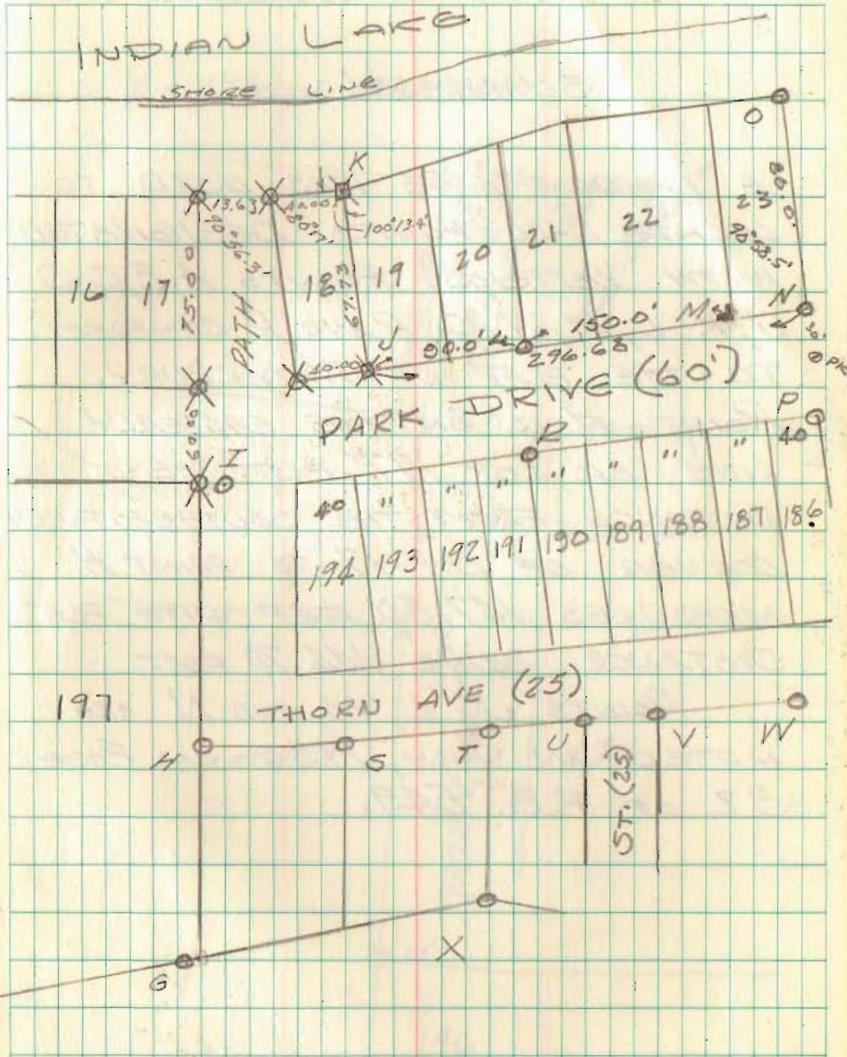 INDIAN LAKE
SHORE LINE
O
K
13.63
40.00
80°17'
100°13.4'
90°56.3'
86.0'
90°58.5'
16
17
75.00
PATH
18
67.73
19
20
21
22
2 M
N
30'
⊙ PK
J
40.00
90.0'
150.0'
M
296.63
PARK DRIVE (60')
60.00
I
R
P
40
40 " " " " " " "
194 193 192 191 190 189 188 187 186
197
THORN AVE (25)
H
S
T
U
V
W
ST. (25)
X
G